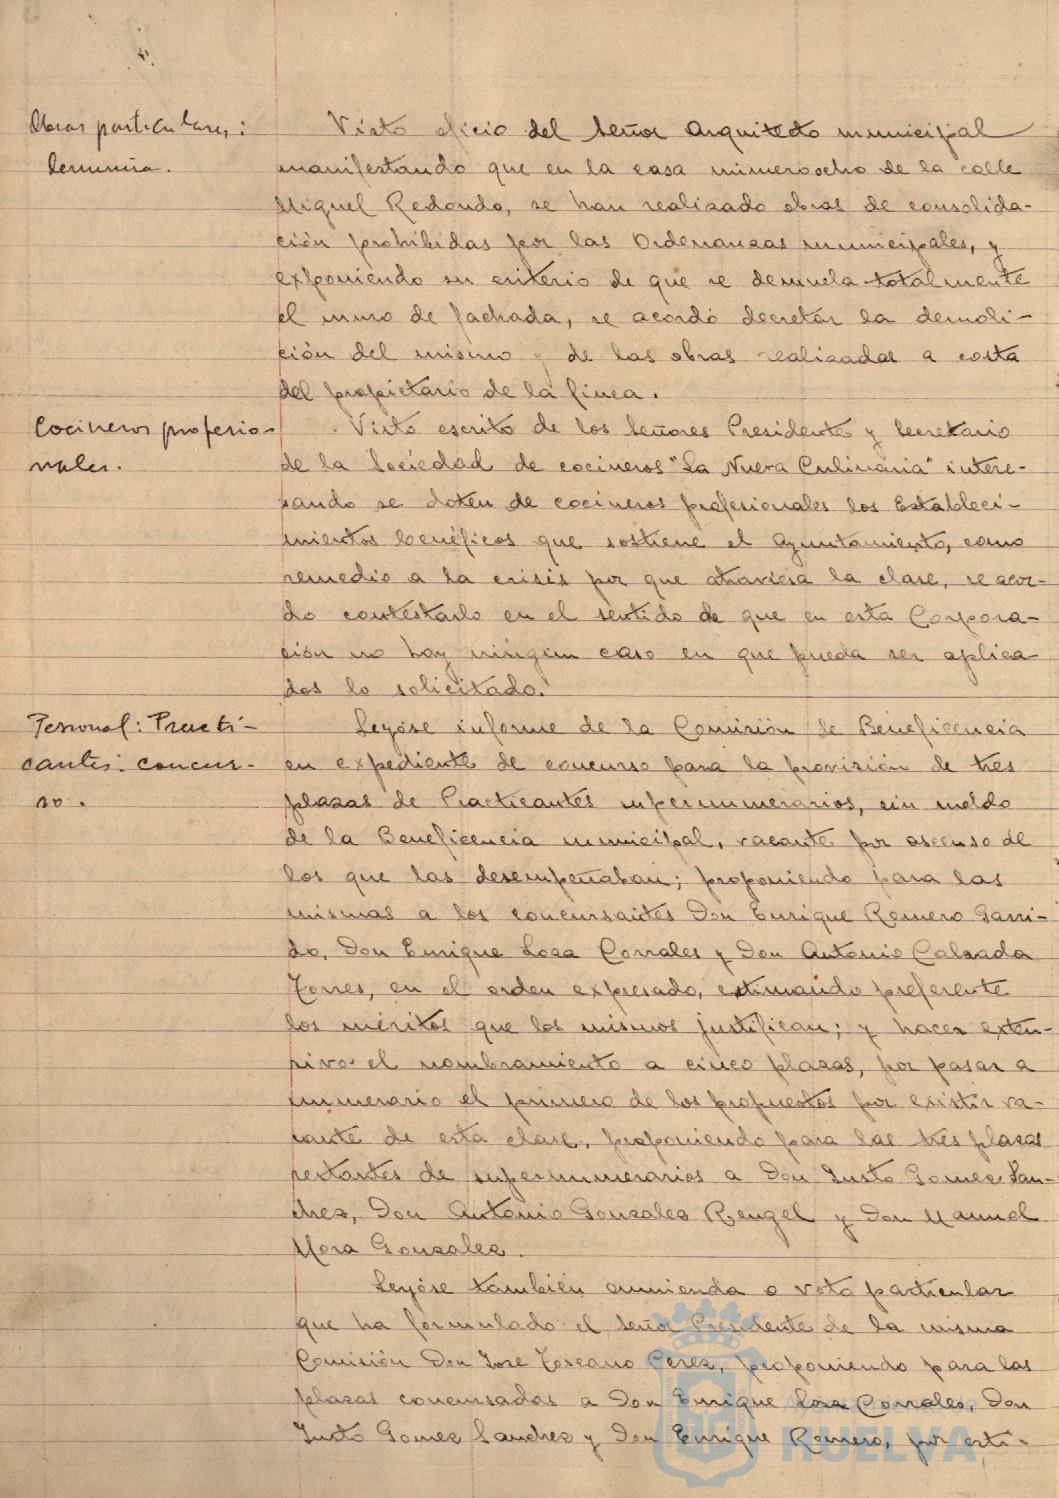 Obras particulares:
denuncia.
Visto oficio del Señor Arquitecto municipal
manifestando que en la casa número ocho de la calle
Miguel Redondo, se han realizado obras de consolida-
ción prohibidas por las Ordenanzas municipales, y
exponiendo su criterio de que se demuela totalmente
el muro de fachada, se acordó decretar la demoli-
ción del mismo y de las obras realizadas a costa
del propietario de la finca.
Cocineros profesio-
nales.
Visto escrito de los Señores Presidente y Secretario
de la Sociedad de cocineros "La Nueva Culinaria" intere-
sando se doten de cocineros profesionales los Estableci-
mientos benéficos que sostiene el Ayuntamiento, como
remedio a la crisis por que atraviesa la clase, se acor-
do contestarlo en el sentido de que en esta Corpora-
ción no hay ningun caso en que pueda ser aplica
dos lo solicitado.
Personal: Practi-
cantes: concur-
so.
Leyóse informe de la Comisión de Beneficencia
en expediente de concurso para la provisión de tres
plazas de Practicantes supernumerarios, sin sueldo
de la Beneficencia municipal, vacante por ascenso de
los que las desempeñaban; proponiendo para las
mismas a los concursantes Don Enrique Romero Garri-
do, Don Enrique Loza Corrales y Don Antonio Calzada
Torres, en el orden expresado, estimando preferente
los méritos que los mismos justifican; y hacer exten-
sivo el nombramiento a cinco plazas, por pasar a
numerario el primero de los propuestos por existir va-
cante de esta clase, proponiendo para las tres plazas
restantes de supernumerarios a Don Justo Gomez San-
chez, Don Antonio Gonzalez Rengel y Don Manuel
Mora Gonzalez.
Leyóse también enmienda o voto particular
que ha formulado el Señor Presidente de la misma
Comisión Don Jose Toscano Perez, proponiendo para las
plazas concursadas a Don Enrique Loza Corrales, Don
Justo Gomez Sanchez y Don Enrique Romero, por esti-
Ayuntamiento de
HUELVA